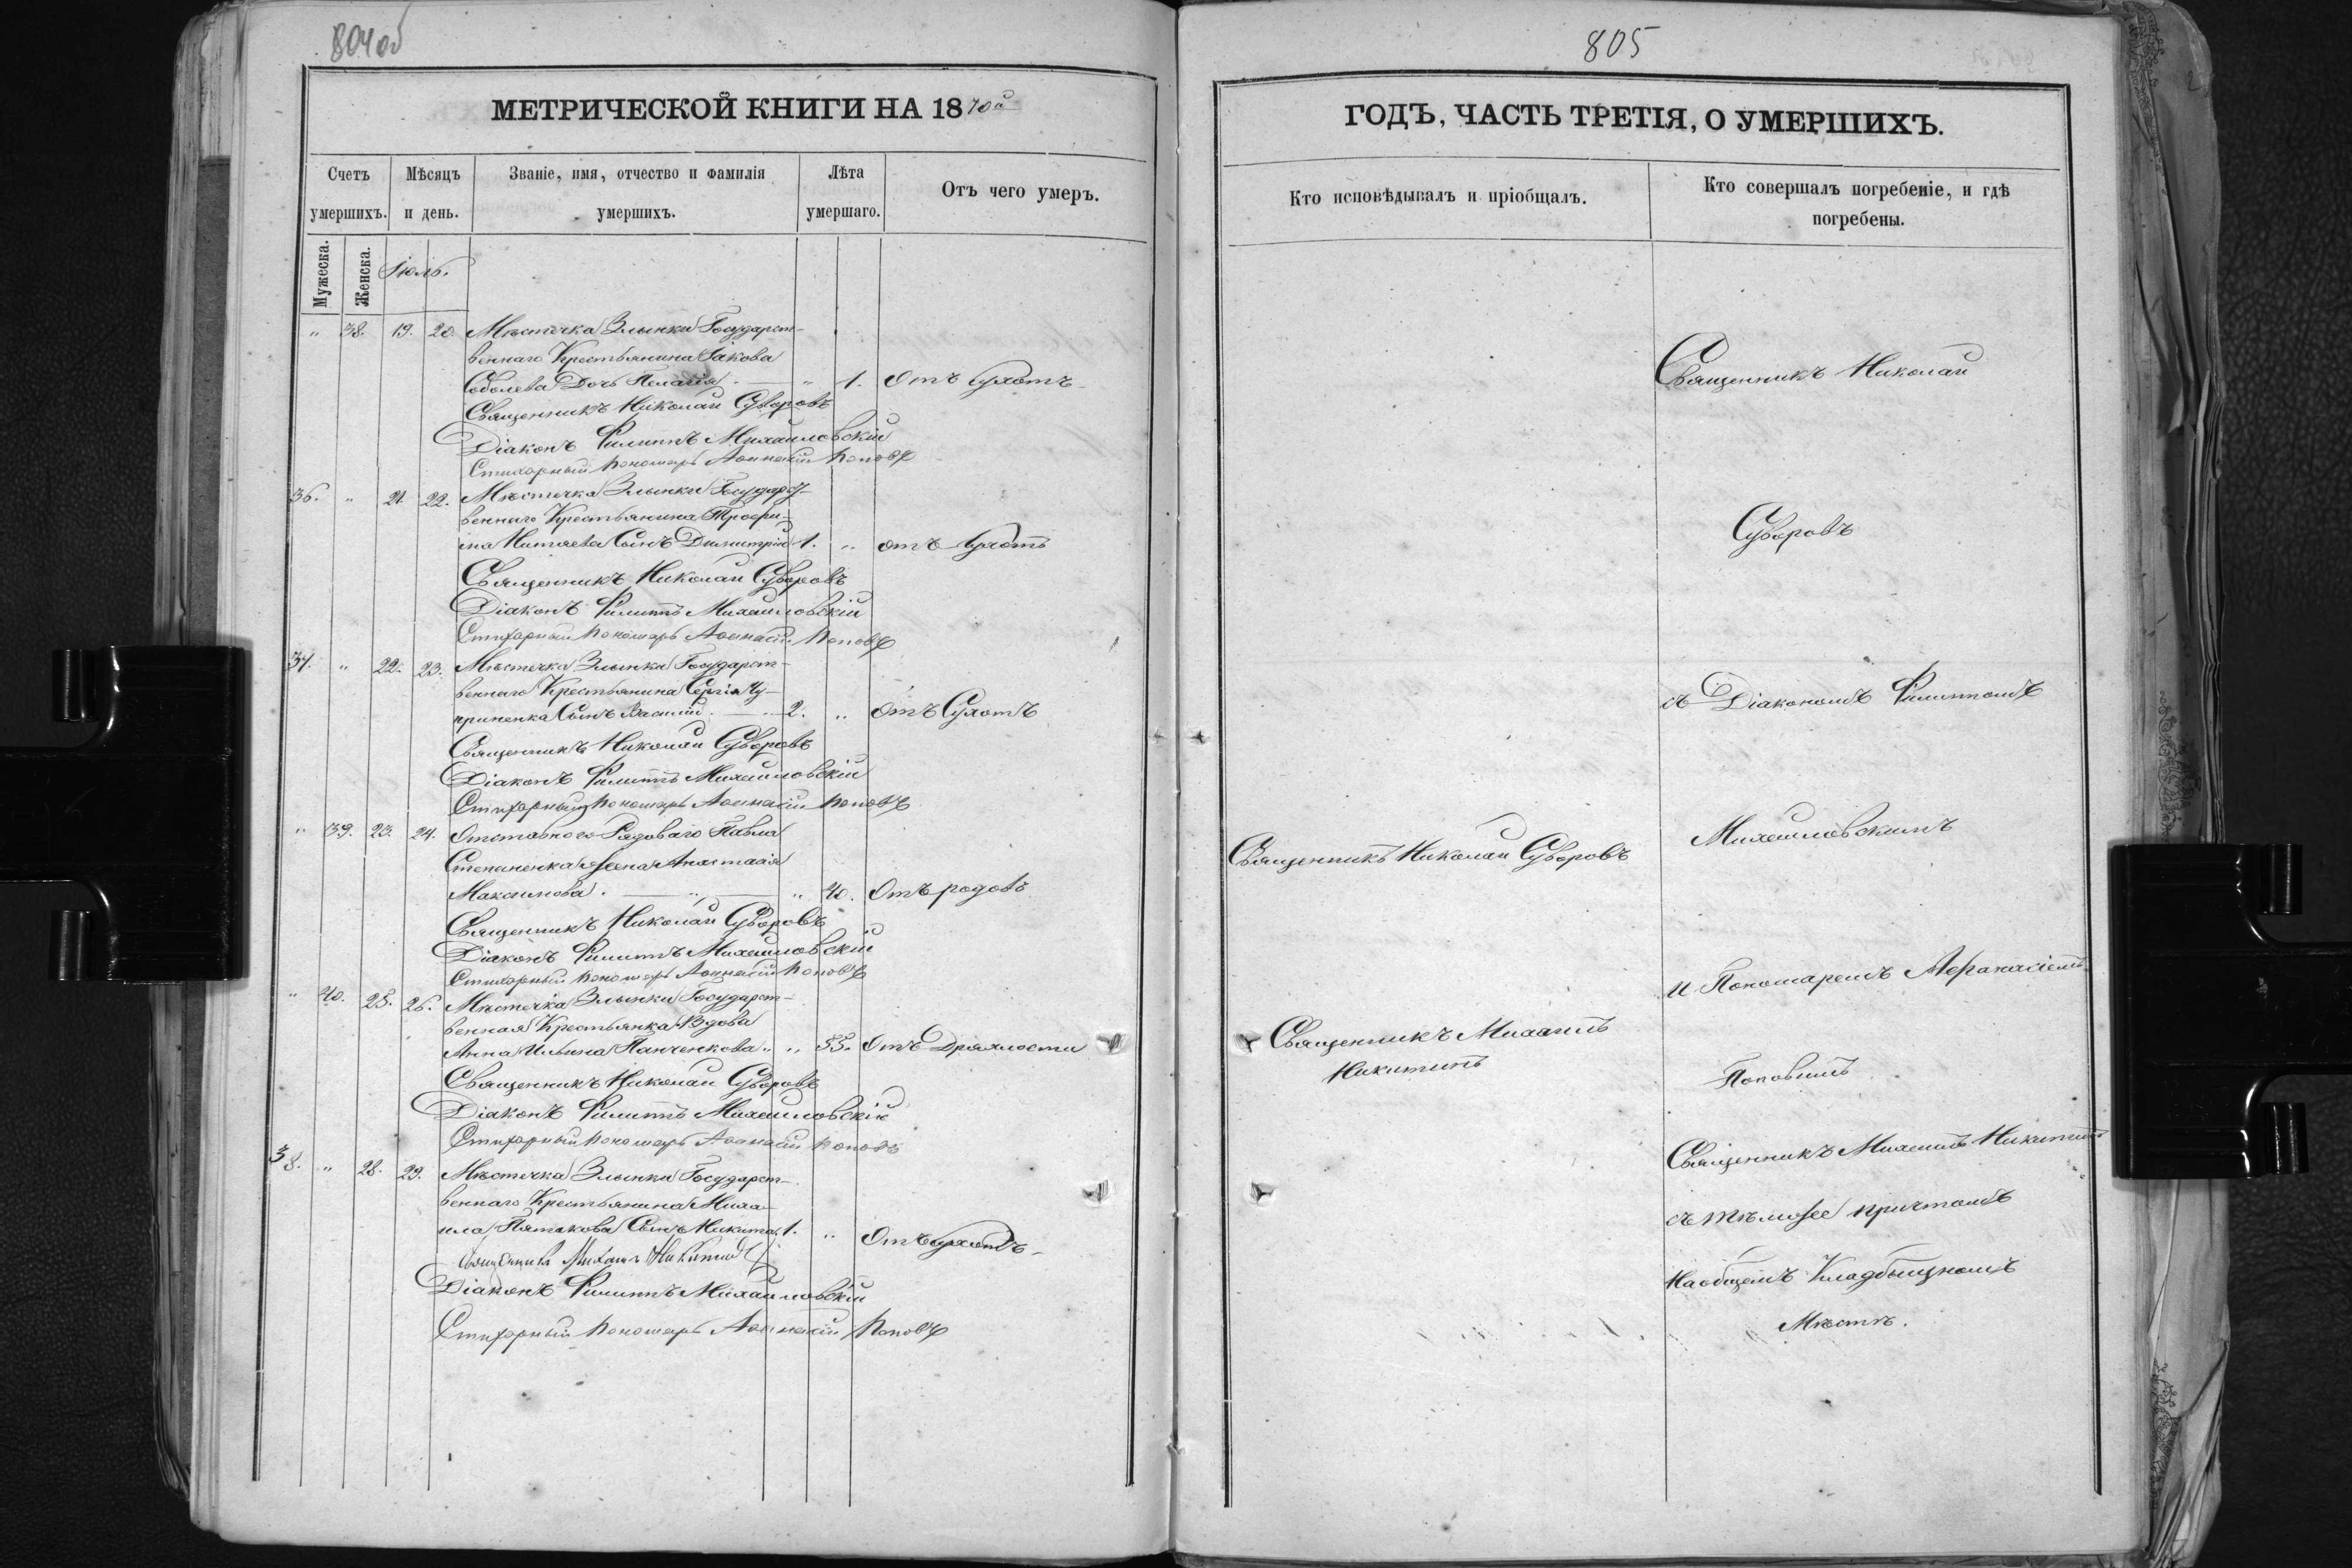 804об
МЕТРИЧЕСКОЙ КНИГИ НА 1870й
Счетъ умершихъ.
Мѣсяцъ и день.
Званіе, имя, отчество и фамилія умершихъ.
Лѣта умершаго.
Отъ чего умеръ.
Мужеска.
Женска.
Іюль.
" 38. 19. 20. Мѣстечка Злынки Государст-
веннаго Крестьянина Іакова
Соболева Дочь Пелагія " 1. Отъ Сухотъ
Священникъ Николай Суворовъ
Діаконъ Филиппъ Михайловскій
Стихарный пономарь Афанасій Поповъ
36. " 21. 22. Мѣстечка Злынки Государст-
веннаго Крестьянина Трофи-
ма Сынъ Димитрій 1. " отъ Сухотъ
Священникъ Николай Суворовъ
Діаконъ Филиппъ Михайловскій
Стихарный пономарь Афанасій Поповъ
37. " 22. 23. Мѣстечка Злынки Государст-
веннаго Крестьянина Сергія Чу-
приненка Сынъ Василій 2. " Отъ Сухотъ
Священникъ Николай Суворовъ
Діаконъ Филиппъ Михайловскій
Стихарный пономарь Афанасій Поповъ
" 39. 23. 24. Отставнаго Рядоваго Павла
Степаненка жена Анастасія
Максимова. " 40. Отъ родовъ
Священникъ Николай Суворовъ
Діаконъ Филиппъ Михайловскій
Стихарный пономарь Афанасій Поповъ
" 40. 25. 26. Мѣстечка Злынки Государст-
венная Крестьянка Вдова
Анна Ильина Панченкова " 55. Отъ Дряхлости
Священникъ Николай Суворовъ
Діаконъ Филиппъ Михайловскій
Стихарный пономарь Афанасій Поповъ
38. " 28. 29. Мѣстечка Злынки Государст-
веннаго Крестьянина Миха-
ила Пятакова Сынъ Никита 1. " Отъ Сухотъ
Священникъ Михаилъ Никитинъ
Діаконъ Филиппъ Михайловскій
Стихарный пономарь Афанасій Поповъ
805
ГОДЪ, ЧАСТЬ ТРЕТІЯ, О УМЕРШИХЪ.
Кто исповѣдывалъ и пріобщалъ.
Кто совершалъ погребеніе, и гдѣ
погребены.
Священникъ Николай
Суворовъ
съ Діакономъ Филиппомъ
Священникъ Николай Суворовъ
Михайловскимъ
и Пономаремъ Афанасіемъ
Священникъ Михаилъ
Никитинъ
Поповымъ
Священникъ Михаилъ Никитинъ
съ тѣмъ же причтомъ
На общемъ Кладбищномъ
Мѣстѣ.